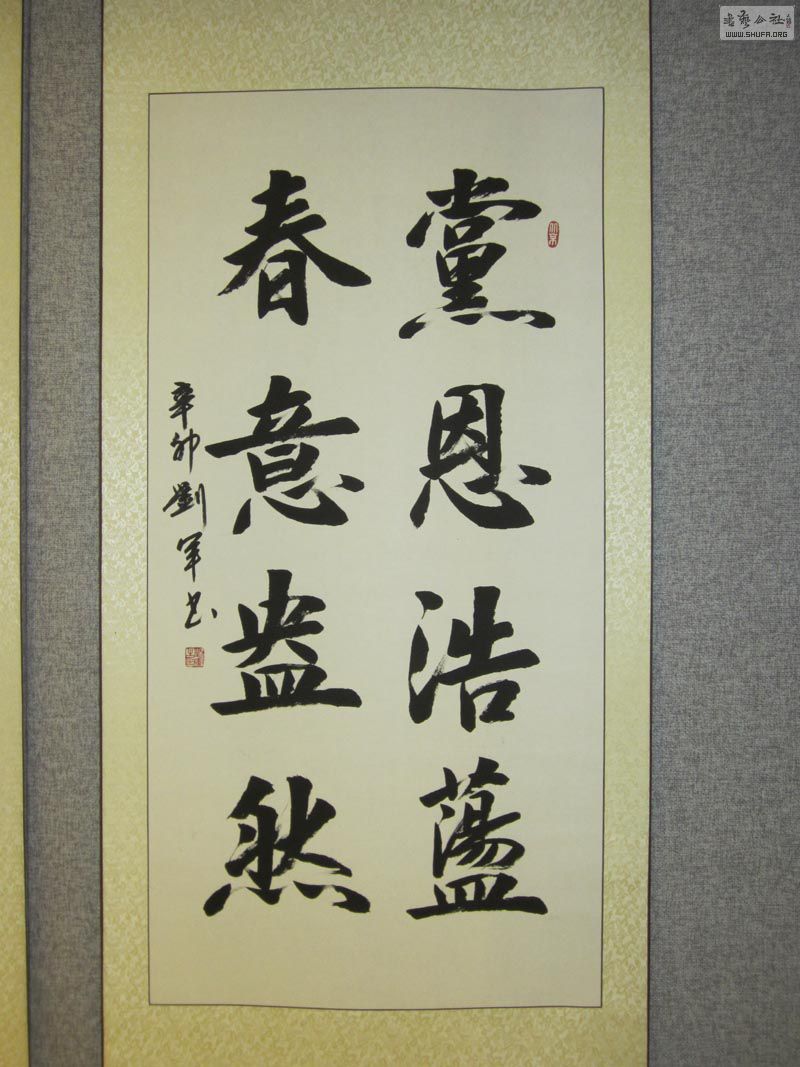 黨恩浩蕩
春意盎然
辛卯劉軍书
书藝公社
WWW.SHUFA.ORG